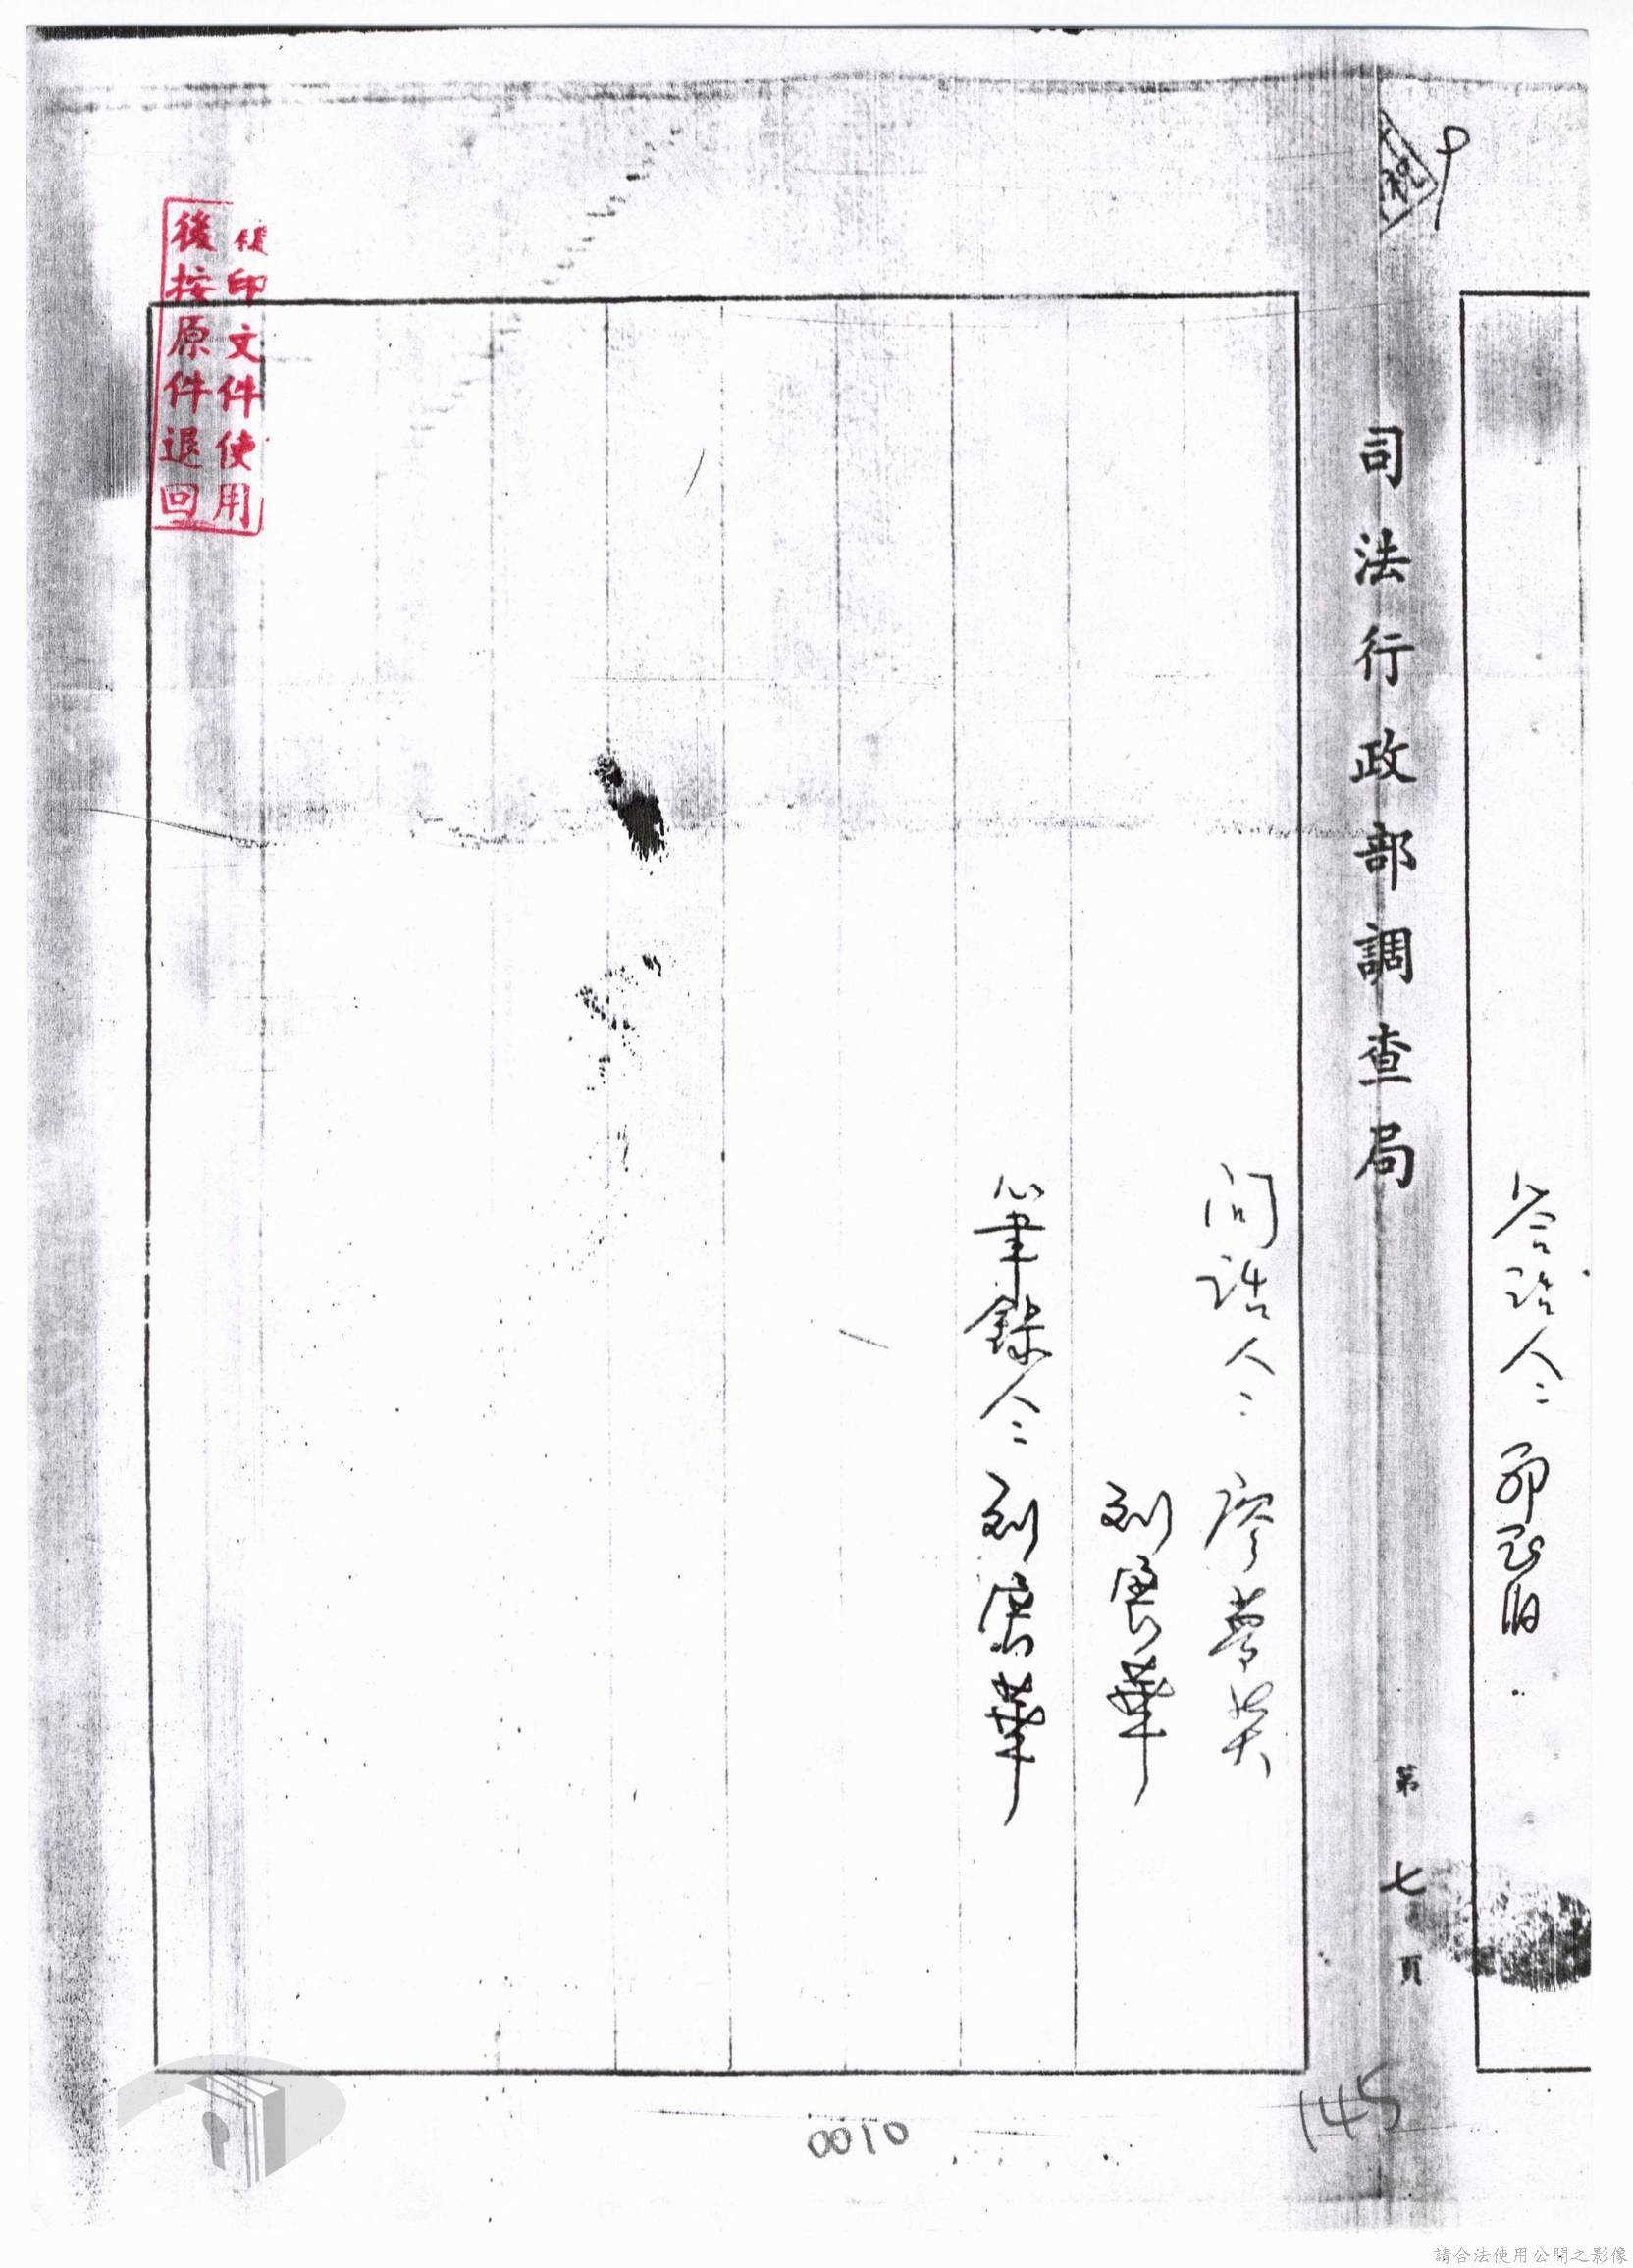 答話人：
司法行政部調查局
第七頁
問話人：廖
劉展華
筆錄人：劉展華
複印文件使用
後按原件退回
145
0010
請合法使用公開之影像